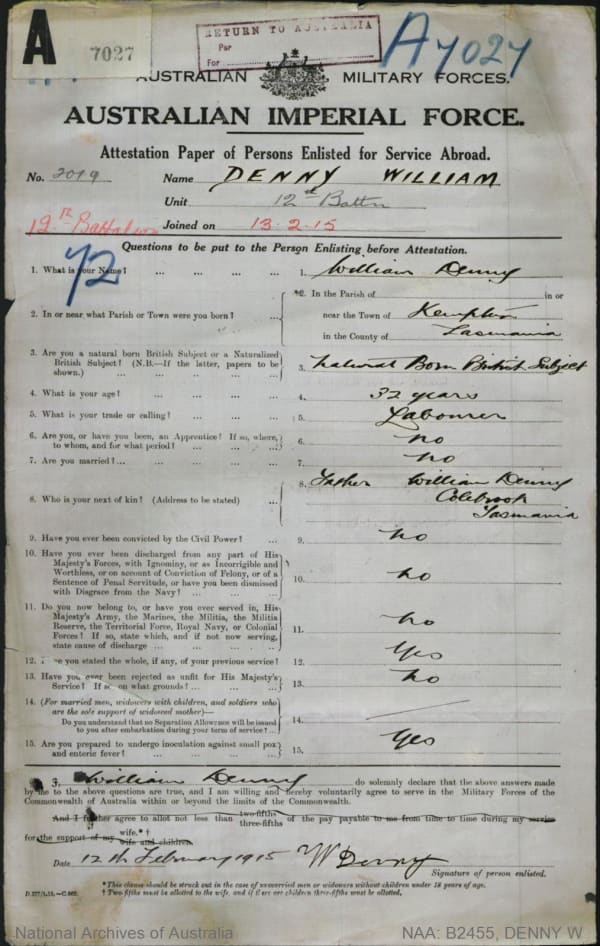 A 7027
RETURN TO AUSTRALIA
Per
For
A7027
AUSTRALIAN MILITARY FORCES.
AUSTRALIAN IMPERIAL FORCE.
Attestation Paper of Persons Enlisted for Service Abroad.
No. 2019 Name DENNY WILLIAM
Unit 12th Battn
12th Battalion Joined on 13.2.15
72
Questions to be put to the Person Enlisting before Attestation.
1. What is your Name? ... ... ... ... 1. William Denny
2. In or near what Parish or Town were you born? ... ... *2. In the Parish of in or
near the Town of Kempton
in the County of Tasmania
3. Are you a natural born British Subject or a Naturalized
British Subject? (N.B.—If the latter, papers to be
shown.) ... ... ... ... ... 3. Natural Born British Subject
4. What is your age? ... ... ... ... 4. 32 years
5. What is your trade or calling? ... ... ... 5. Labourer
6. Are you, or have you been, an Apprentice? If so, where,
to whom, and for what period? ... ... ... 6. no
7. Are you married?... ... ... ... ... 7. no
8. Who is your next of kin? (Address to be stated) ... 8. Father William Denny
Colebrook
Tasmania
9. Have you ever been convicted by the Civil Power? ... 9. no
10. Have you ever been discharged from any part of His
Majesty's Forces, with Ignominy, or as Incorrigible and
Worthless, or on account of Conviction of Felony, or of a
Sentence of Penal Servitude, or have you been dismissed
with Disgrace from the Navy? ... ... ... 10. no
11. Do you now belong to, or have you ever served in, His
Majesty's Army, the Marines, the Militia, the Militia
Reserve, the Territorial Force, Royal Navy, or Colonial
Forces? If so, state which, and if not now serving,
state cause of discharge ... ... ... ... 11. no
12. you stated the whole, if any, of your previous service? 12. Yes
13. Have you ever been rejected as unfit for His Majesty's
Service? If so, on what grounds? ... ... ... 13. no
14. (For married men, widowers with children, and soldiers who
are the sole support of widowed mother)—
Do you understand that no Separation Allowance will be issued
to you after embarkation during your term of service? ... 14.
15. Are you prepared to undergo inoculation against small pox
and enteric fever? ... ... ... ... 15. Yes
I, William Denny do solemnly declare that the above answers made
by me to the above questions are true, and I am willing and hereby voluntarily agree to serve in the Military Forces of the
Commonwealth of Australia within or beyond the limits of the Commonwealth.
And I further agree to allot not less than two-fifths three-fifths of the pay payable to me from time to time during my service
for the support of my wife.*† wife and children.
Date 12th February 1915 W Denny
Signature of person enlisted.
* This clause should be struck out in the case of unmarried men or widowers without children under 18 years of age.
† Two-fifths must be allotted to the wife, and if there are children three-fifths must be allotted.
National Archives of Australia NAA: B2455, DENNY W